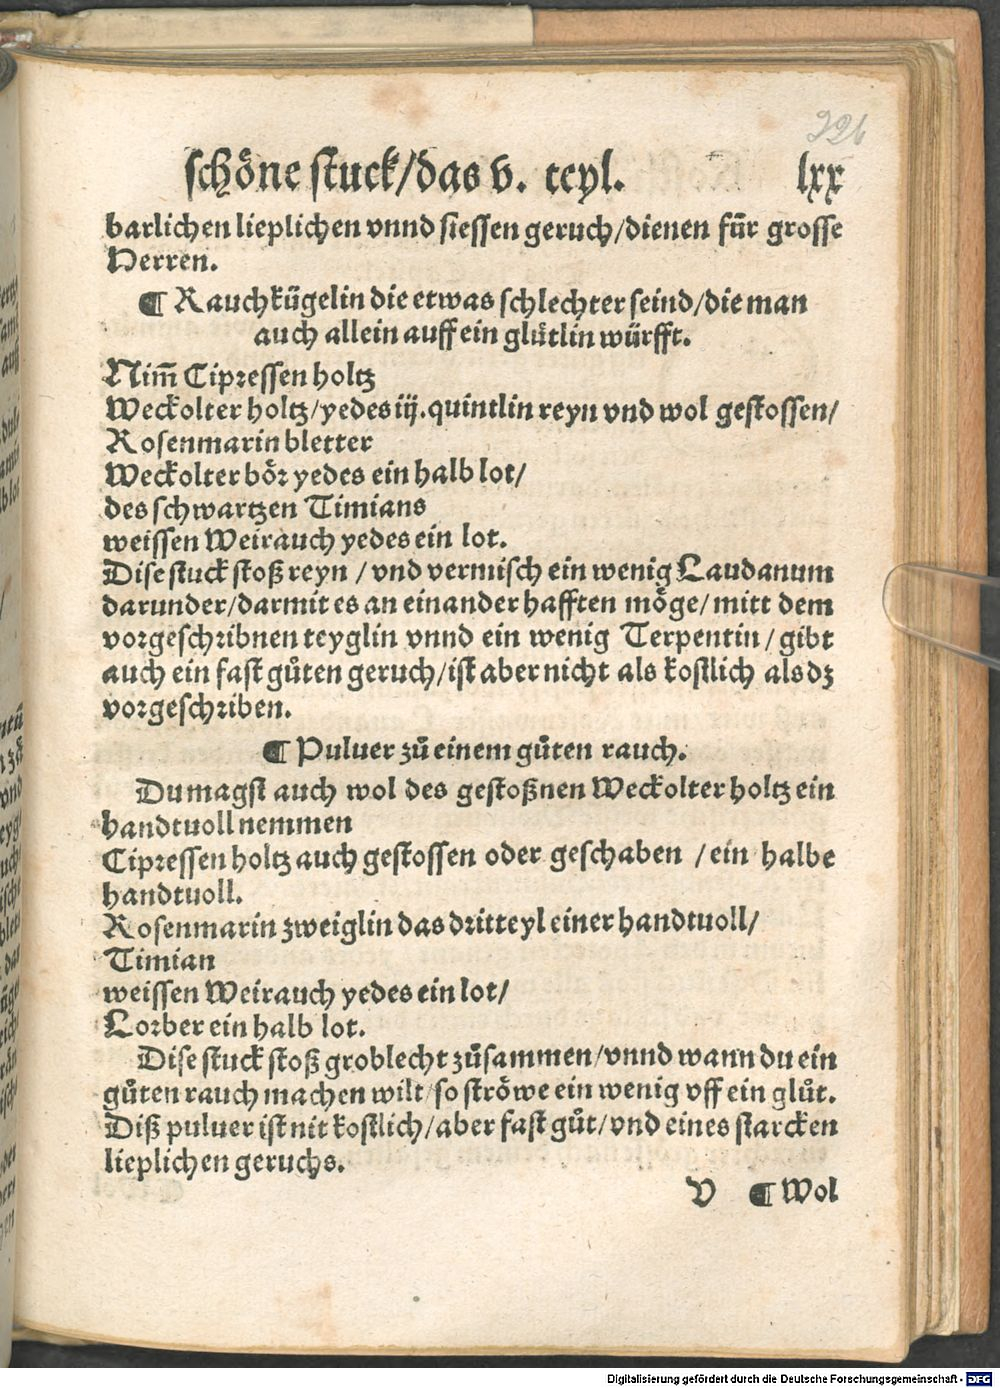 221
schöne stuck/das v. teyl. lxx
barlichen lieplichen vnnd siessen geruch/dienen für grosse
Herren.
¶ Rauchkügelin die etwas schlechter seind/die man
auch allein auff ein glütlin würfft.
Nim̄ Cipressen holtz
Weckolter holtz/yedes iij.quintlin reyn vnd wol gestossen/
Rosenmarin bletter
Weckolter bör yedes ein halb lot/
des schwartzen Timians
weissen Weirauch yedes ein lot.
Dise stuck stoß reyn / vnd vermisch ein wenig Laudanum
darunder/darmit es an einander hafften möge/mitt dem
vorgeschribnen teyglin vnnd ein wenig Terpentin/gibt
auch ein fast gůten geruch/ist aber nicht als kostlich als dz
vorgeschriben.
¶ Puluer zů einem gůten rauch.
Du magst auch wol des gestoßnen Weckolter holtz ein
handtuoll nemmen
Cipressen holtz auch gestossen oder geschaben /ein halbe
handtuoll.
Rosenmarin zweiglin das dritteyl einer handtuoll/
Timian
weissen Weirauch yedes ein lot/
Lorber ein halb lot.
Dise stuck stoß groblecht zůsammen/vnnd wann du ein
gůten rauch machen wilt/so ströwe ein wenig vff ein glůt.
Diß puluer ist nit kostlich/aber fast gůt/vnd eines starcken
lieplichen geruchs.
V ¶ Wol
Digitalisierung gefördert durch die Deutsche Forschungsgemeinschaft - DFG